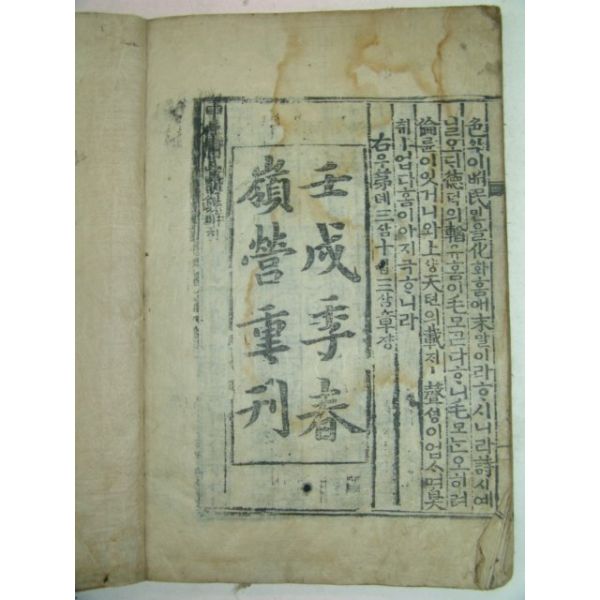 色ᄉᆡᆨ이 ᄡᅥ民민을 化화홈애 末말이라 ᄒᆞ시니라 詩시예
닐오ᄃᆡ 德덕의 輶유홈이 毛모ᄀᆞᆮ다 ᄒᆞ니 毛모ᄂᆞᆫ 오히려
倫륜이 잇거니와 上샹天텬의 載ᄌᆡㅣ 聲셩이 업스며 臭
ㅣ 업다 홈이아 지극ᄒᆞ니라
右우ᄂᆞᆫ 第뎨三삼十십三삼章쟝
壬戌季春
嶺營重刊